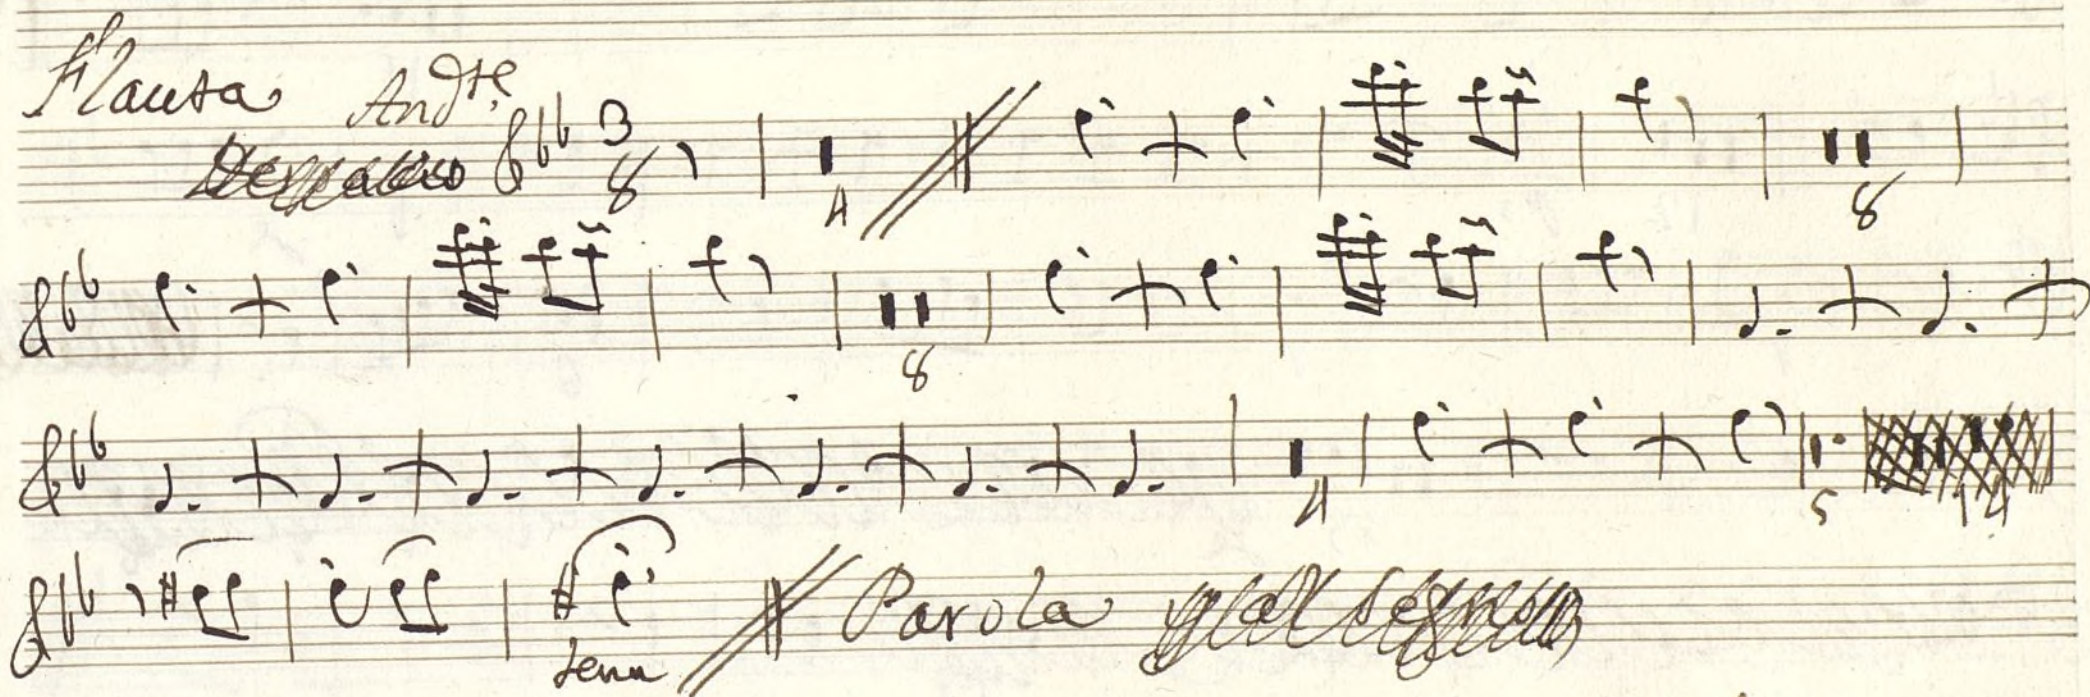 Flauta And.te
3
8
4
8
8
4
5
14
tenu
Parola